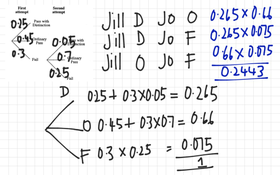 First attempt
Second attempt
0.25 Pass with Distinction
0.45 Ordinary Pass
0.3 Fail
0.05 Pass with Distinction
0.7 Ordinary Pass
0.25 Fail
Jill D Jo O 0.265 × 0.66
Jill D Jo F 0.265 × 0.075
Jill O Jo F 0.66 × 0.075
0.2443
D 0.25 + 0.3 × 0.05 = 0.265
O 0.45 + 0.3 × 0.7 = 0.66
F 0.3 × 0.25 = 0.075
1